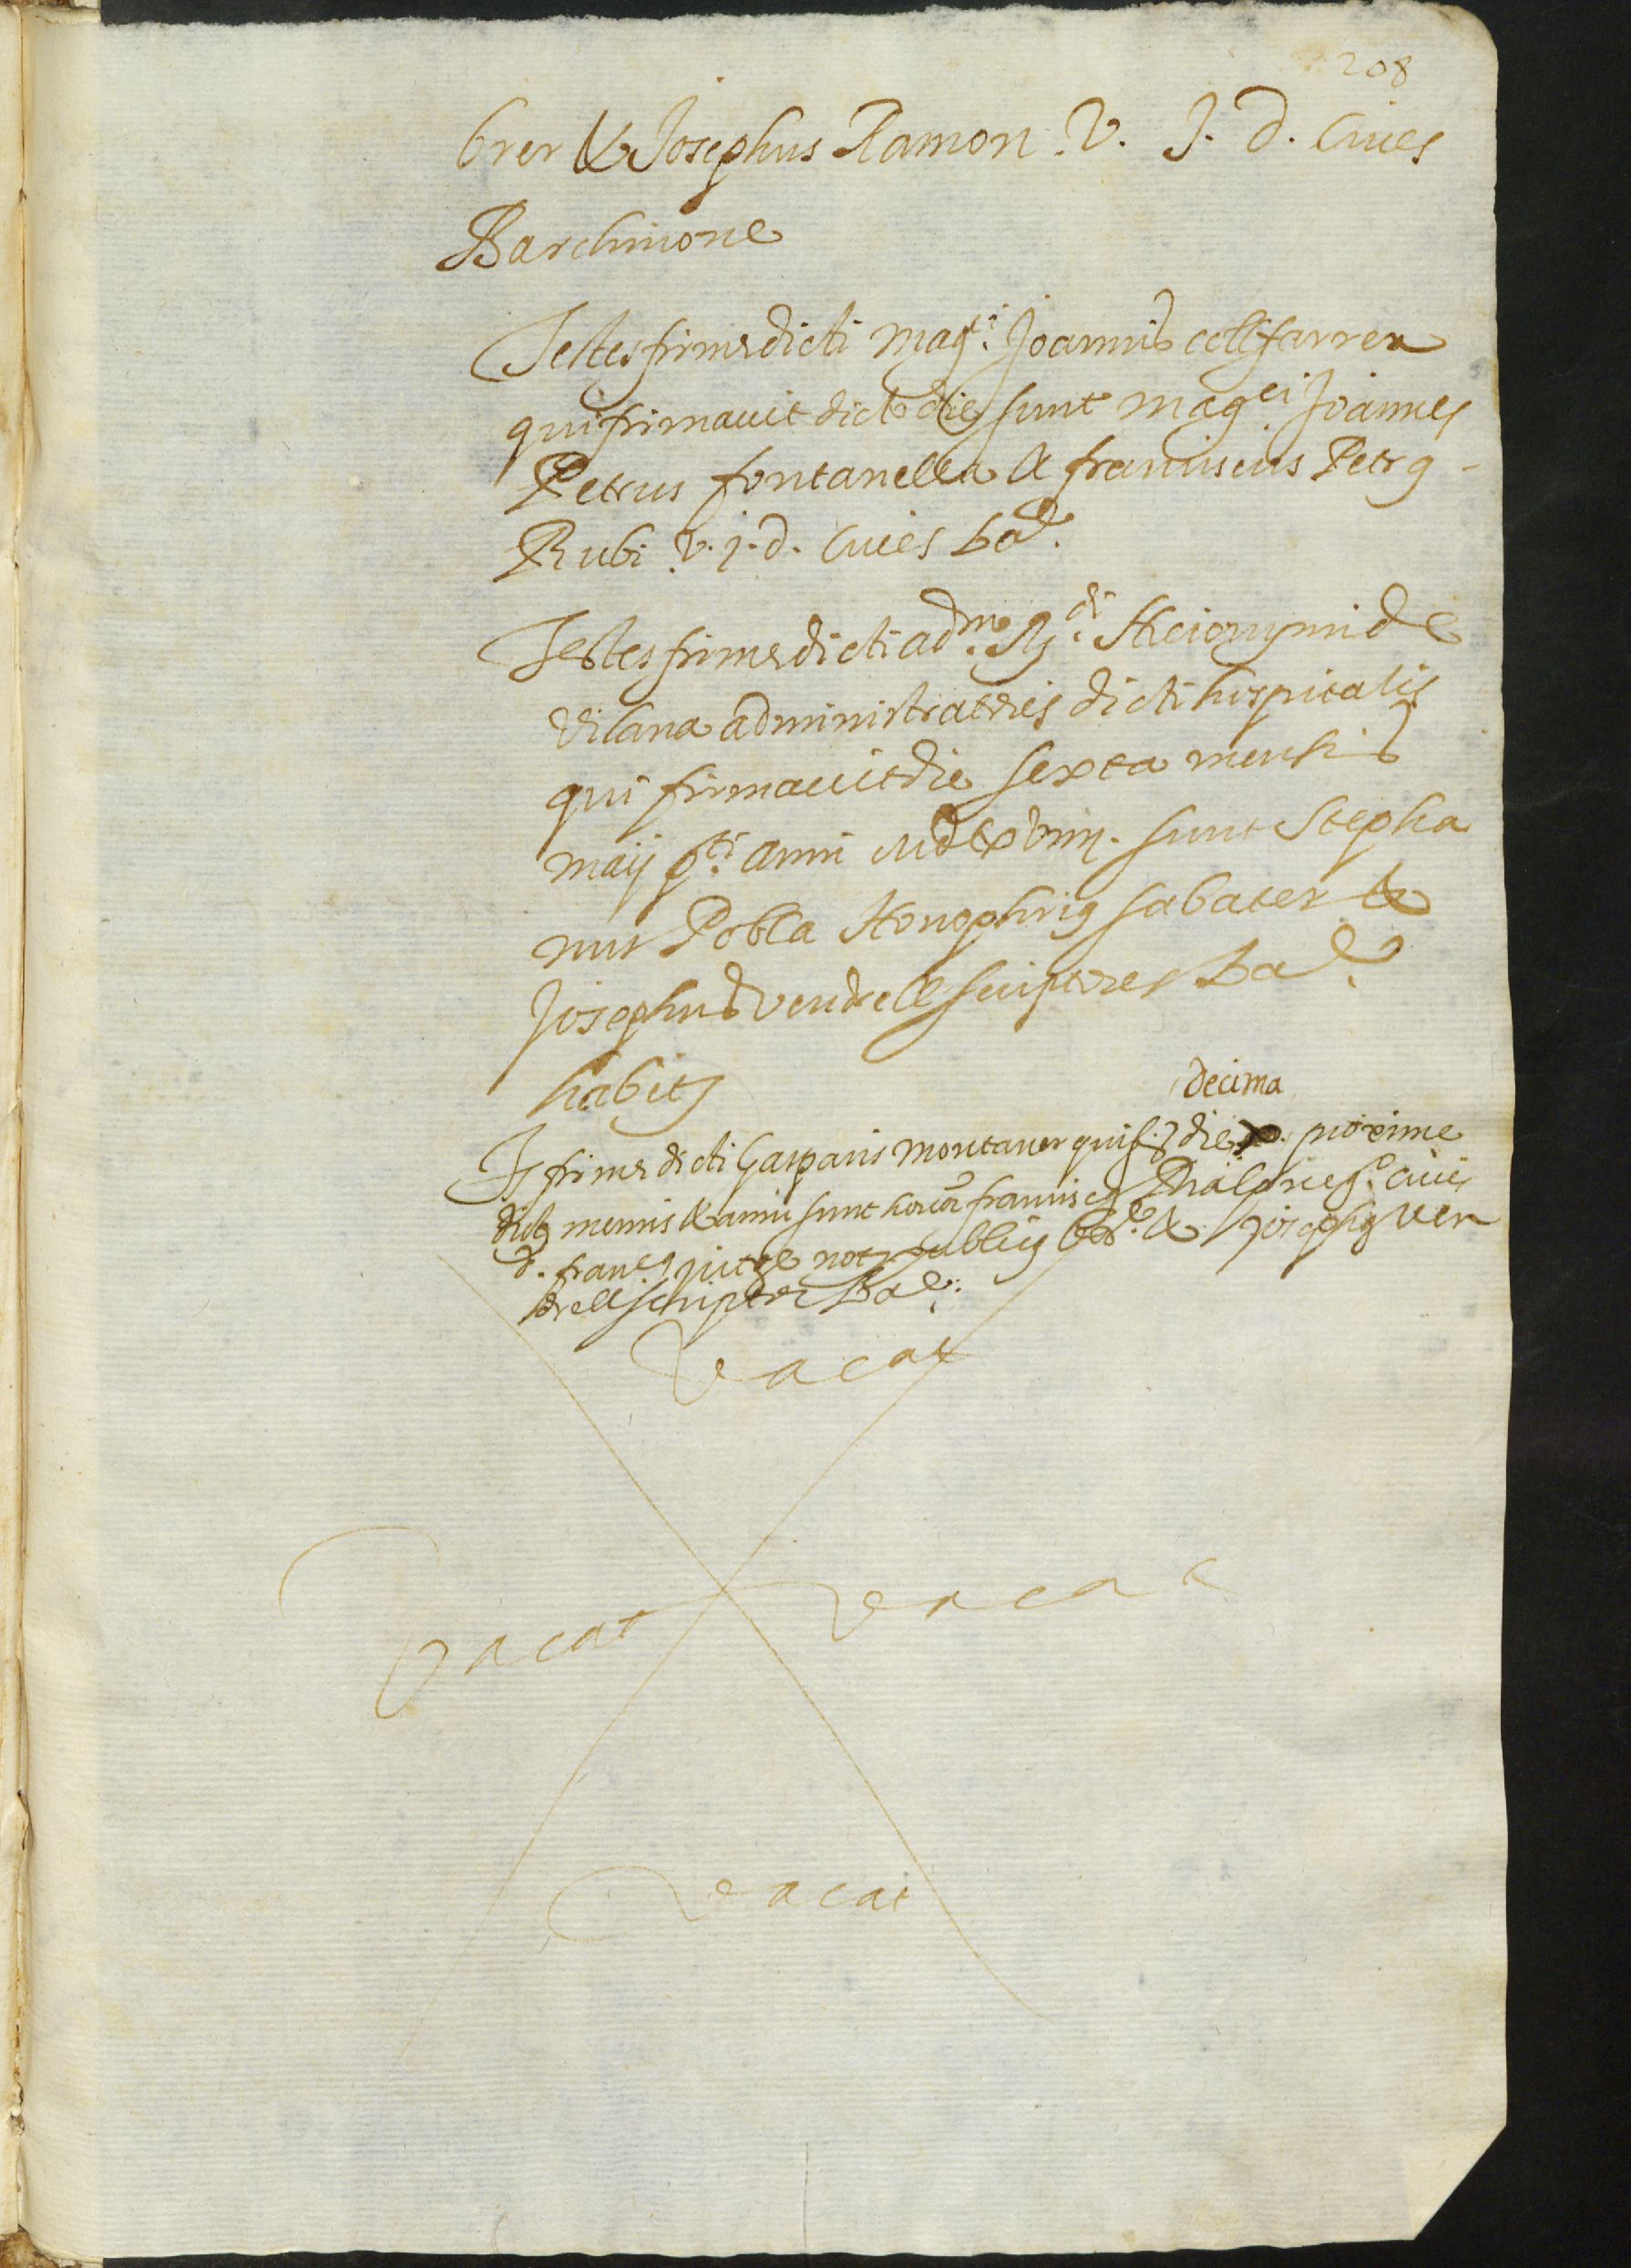 208
brer & Josephus Ramon V. J. d. Ciues
Barchinone
Testes firmæ dicti magci. Joannis collfarrer
qui firmauit dicto die sunt magci. Joannes
Petrus fontanella & franciscus Petrg
Rubi V. j. d. Ciues bar.
Testes firmæ dicti adm. Rdi. Hieronymi de
Vilana administratoris dicti hospitalis
qui firmauit die sexta mensis
maij pti. anni sunt Stepha
nus Pobla Honophrig sabater &
Josephus vendrell scriptores Bar.
habitt
decima
Ts firmæ dicti Gasparis montaner qui f. die proxime
dictt mensis & anni sunt francisc Ciuis
d. franc9 jutge nott publicg bar. & josephg ven
drell scriptor Bar.
Vacat
Vacat Vacat
Vacat